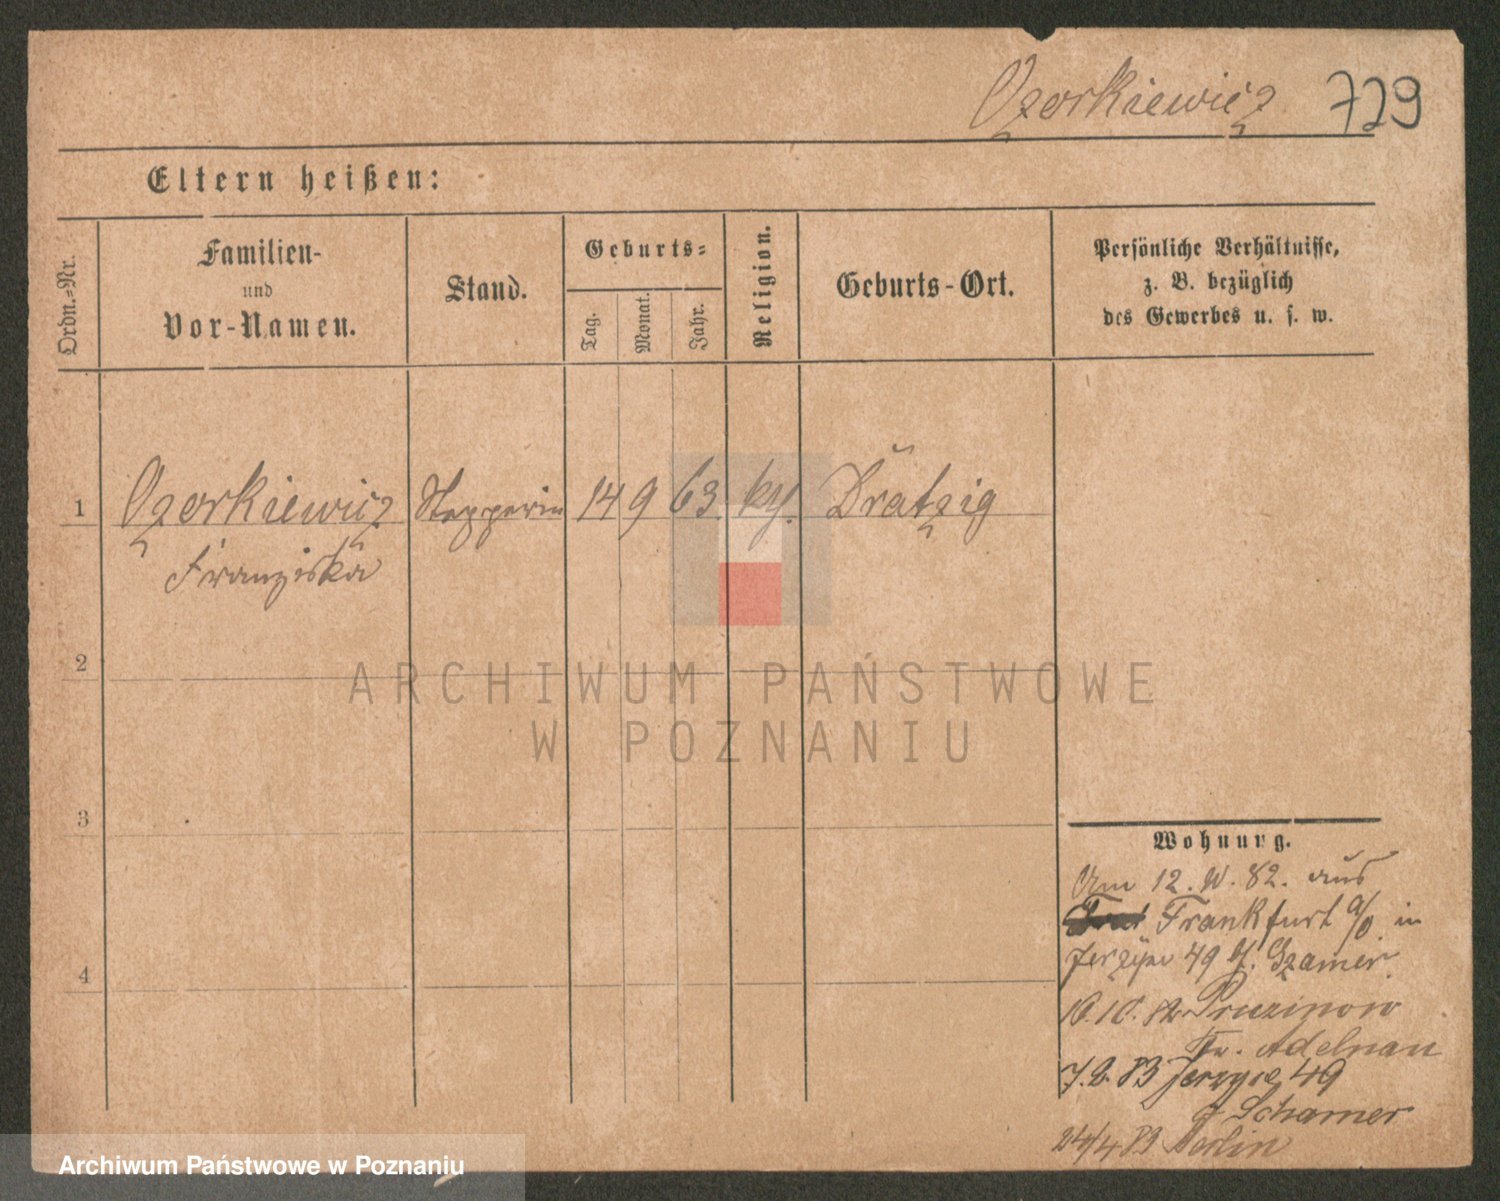 Ozorkiewicz 729
Eltern heißen:
Ordn.-Nr.
Familien-
und
Vor-Namen.
Stand.
Geburts-
Tag.
Monat.
Jahr.
Religion.
Geburts-Ort.
Persönliche Verhältnisse,
z. B. bezüglich
des Gewerbes u. s. w.
1 Ozorkiewicz Stepperin 14 9 63. Drätzig
Franziska
2
3
4
Wohnung.
Am 12. 82. aus
Frankfurt a/O. in
49
82 Pruzinow
Kr. Adelnau
83 Jerzyce 49
Schamer
24/4 83 Berlin
ARCHIWUM PAŃSTWOWE
W POZNANIU
Archiwum Państwowe w Poznaniu